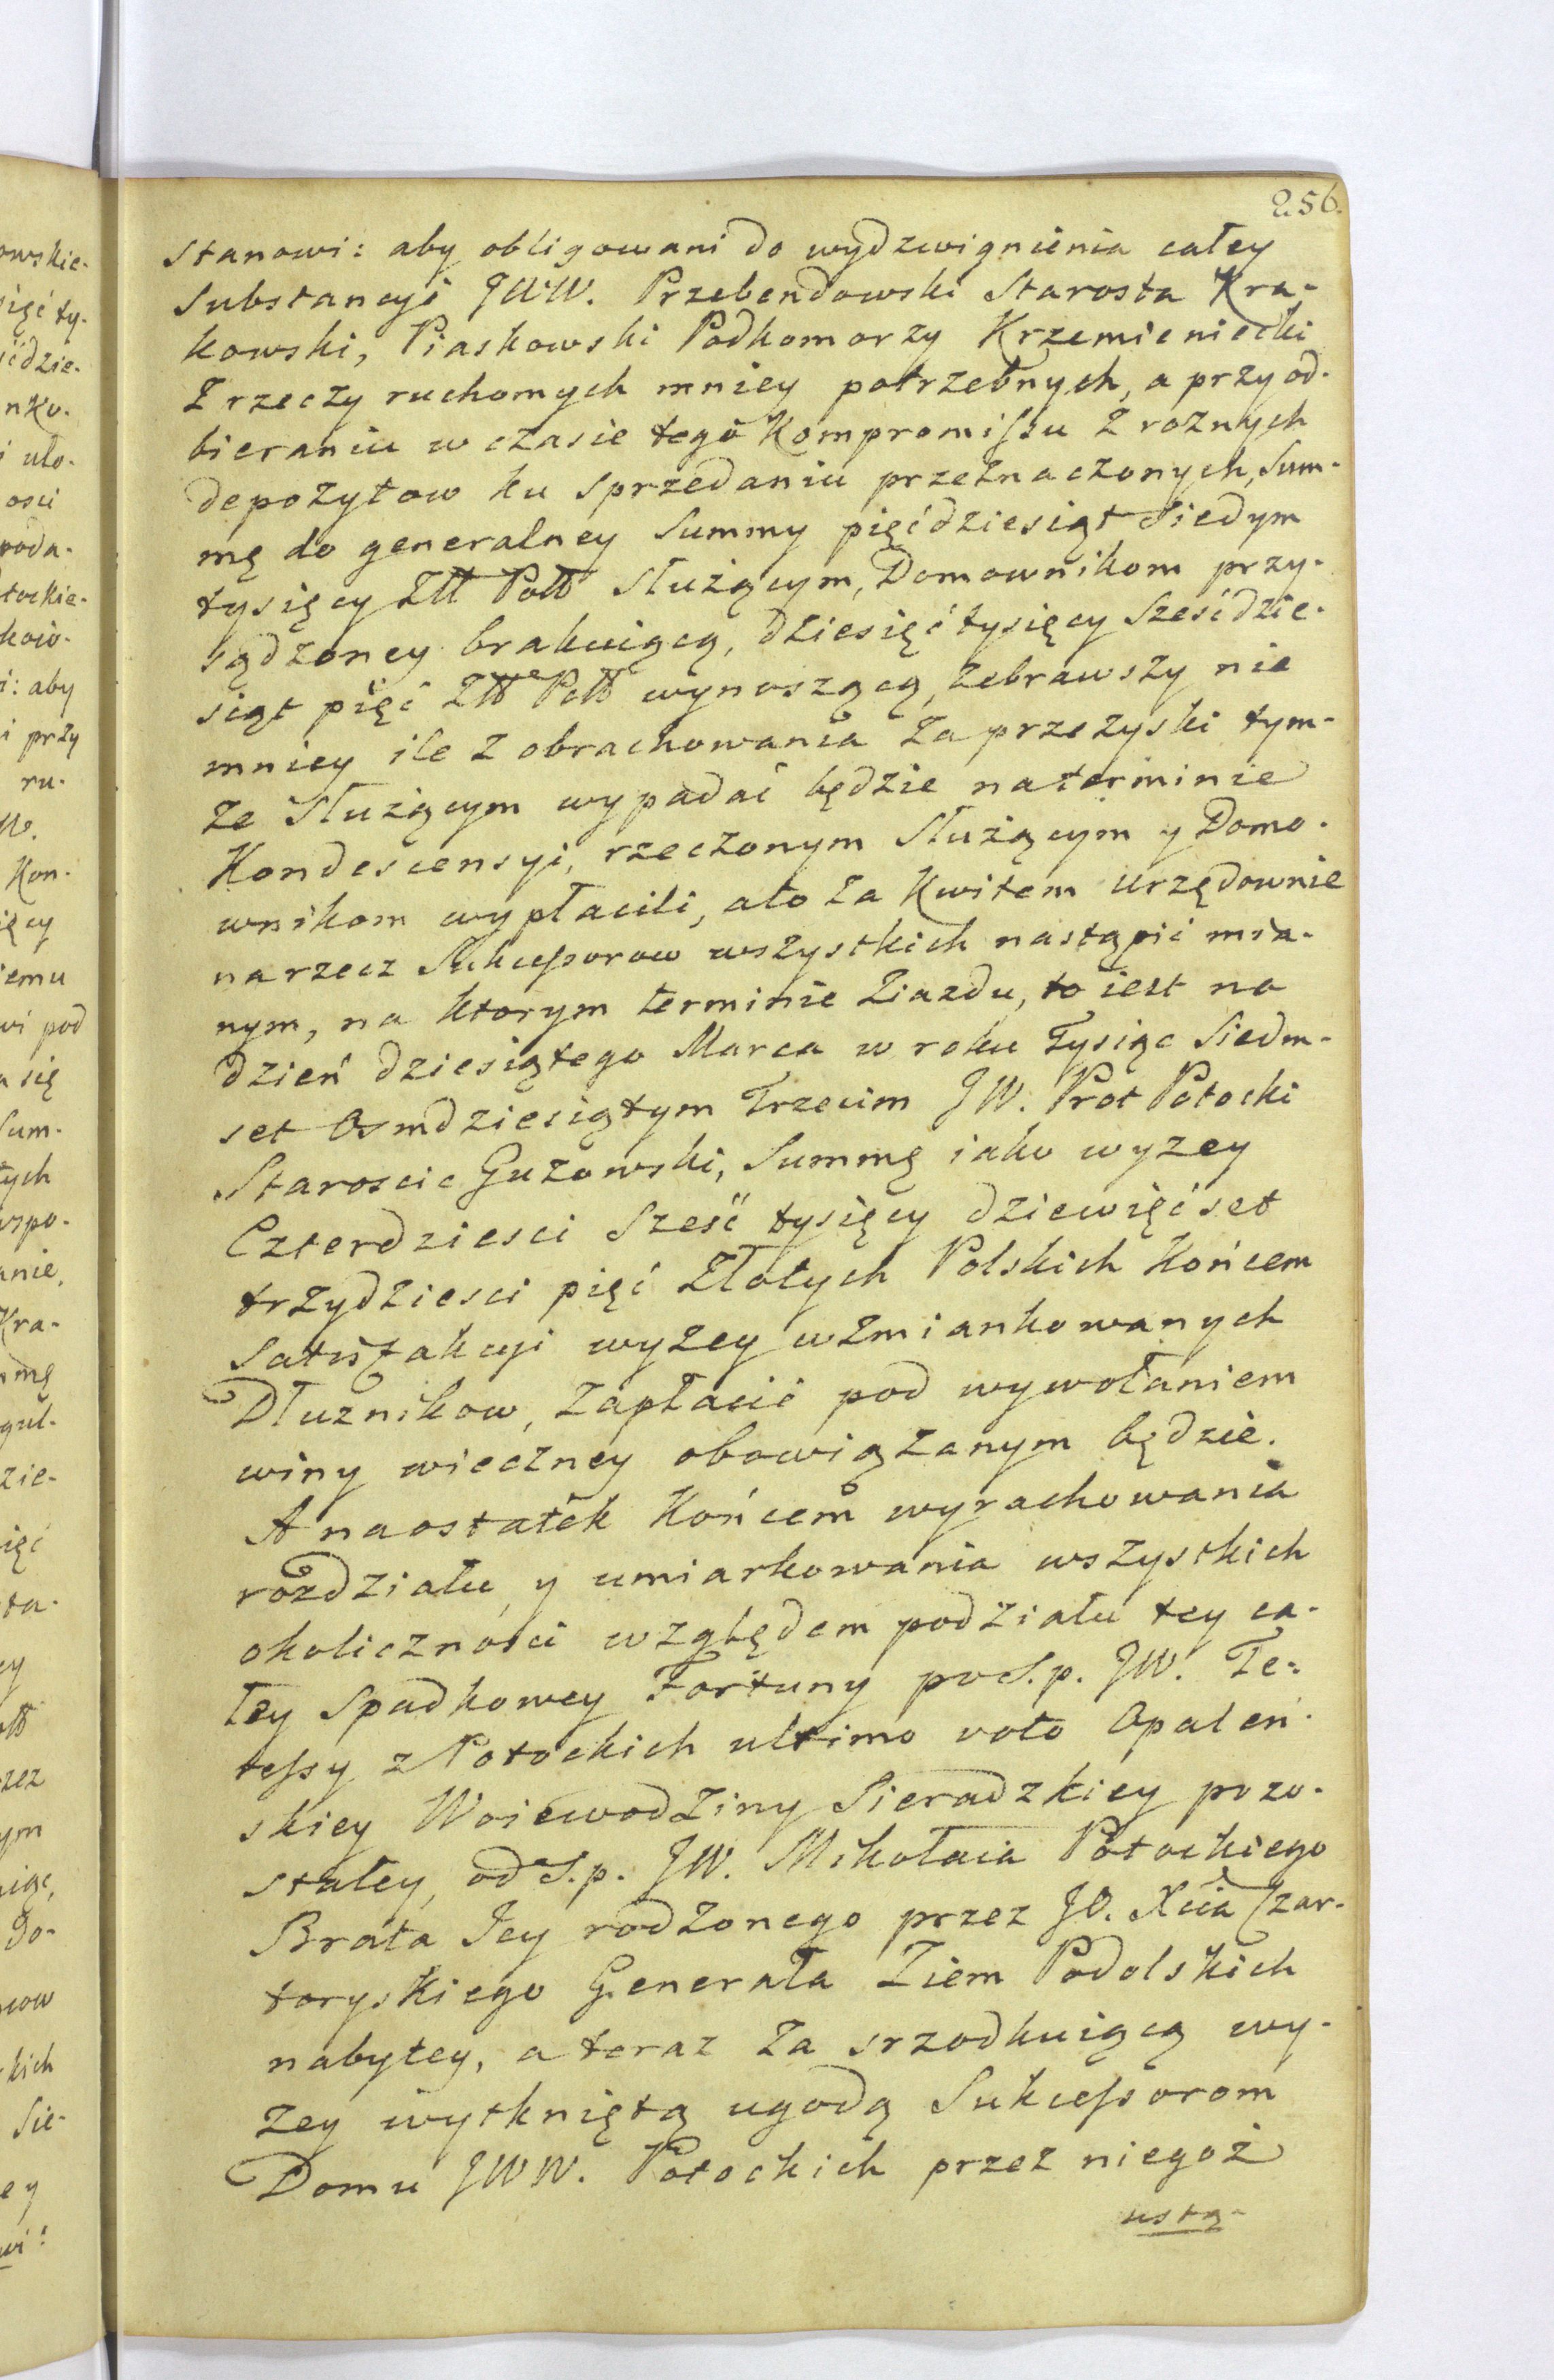 256.
stanowi: aby obligowani do wydzwignienia całey
Substancyi JWW. Przebendowski Starosta Kra-
kowski, Piaskowski Podkomorzy Krzemieniecki
z rzeczy ruchomych mniey potrzebnych, a przy od-
bieraniu w czasie tego Kompromissu z roznych
depozytow ku sprzedaniu przeznaczonych, Sum-
mę do generalney Summy pięćdziesiąt Siedym
tysięcy Złł Poll Służącym, Domownikom przy-
sądzoney brakuiącą, dziesięć tysięcy sześćdzie-
siąt pięć Złł Poll wynoszącą, zebrawszy nie
mniey ile z obrachowania za przezyski tym-
że Służącym wypadać będzie na terminie
Kondescensyi, rzeczonym Służącym y Domo-
wnikom wypłacili, a to za Kwitem urzędownie
na rzecz Sukcessorow wszystkich nastąpić mia-
nym, na ktorym terminie Ziazdu, to iest na
dzień dziesiątego Marca w roku Tysiąc Siedm-
set Osmdziesiątym Trzecim JW. Prot Potocki
Staroscic Guzowski, Summę iako wyzey
Czterdziesci Sześć tysięcy dziewięćset
trzydziesci pięć Złotych Polskich końcem
Satisfakcyi wyzey wzmiankowanych
Dłuznikow, zapłacić pod wywołaniem
winy wieczney obowiązanym będzie.
A naostatek końcem wyrachowania
rozdziału y umiarkowania wszystkich
okoliczności względem podziału tey ca-
łey Spadkowey Fortuny po S.p. JW. Te-
ressy z Potockich ultimo voto Opaleń-
skiey Woiewodziny Sieradzkiey pozo-
stałey, od S.p. JW. Mikołaia Potockiego
Brata Jey rodzonego przez JO. Xcia Czar-
toryskiego Generała Ziem Podolskich
nabytey, a teraz za srzodkuiącą wy-
zey wytkniętą ugodą Sukcessorom
Domu JWW. Potockich przez niegoż
ustą-
owskie-
sięć ty-
nko-
i uło-
ości
poda-
tockie-
i: aby
i przy
ru-
Kon-
ięcy
iemu
wi pod
a się
Sum-
tych
wspo-
anie,
Kra-
mmę
gul-
zie-
ięć
sta-
ey
zez
ym
do-
kich
Sie-
ey
wi: